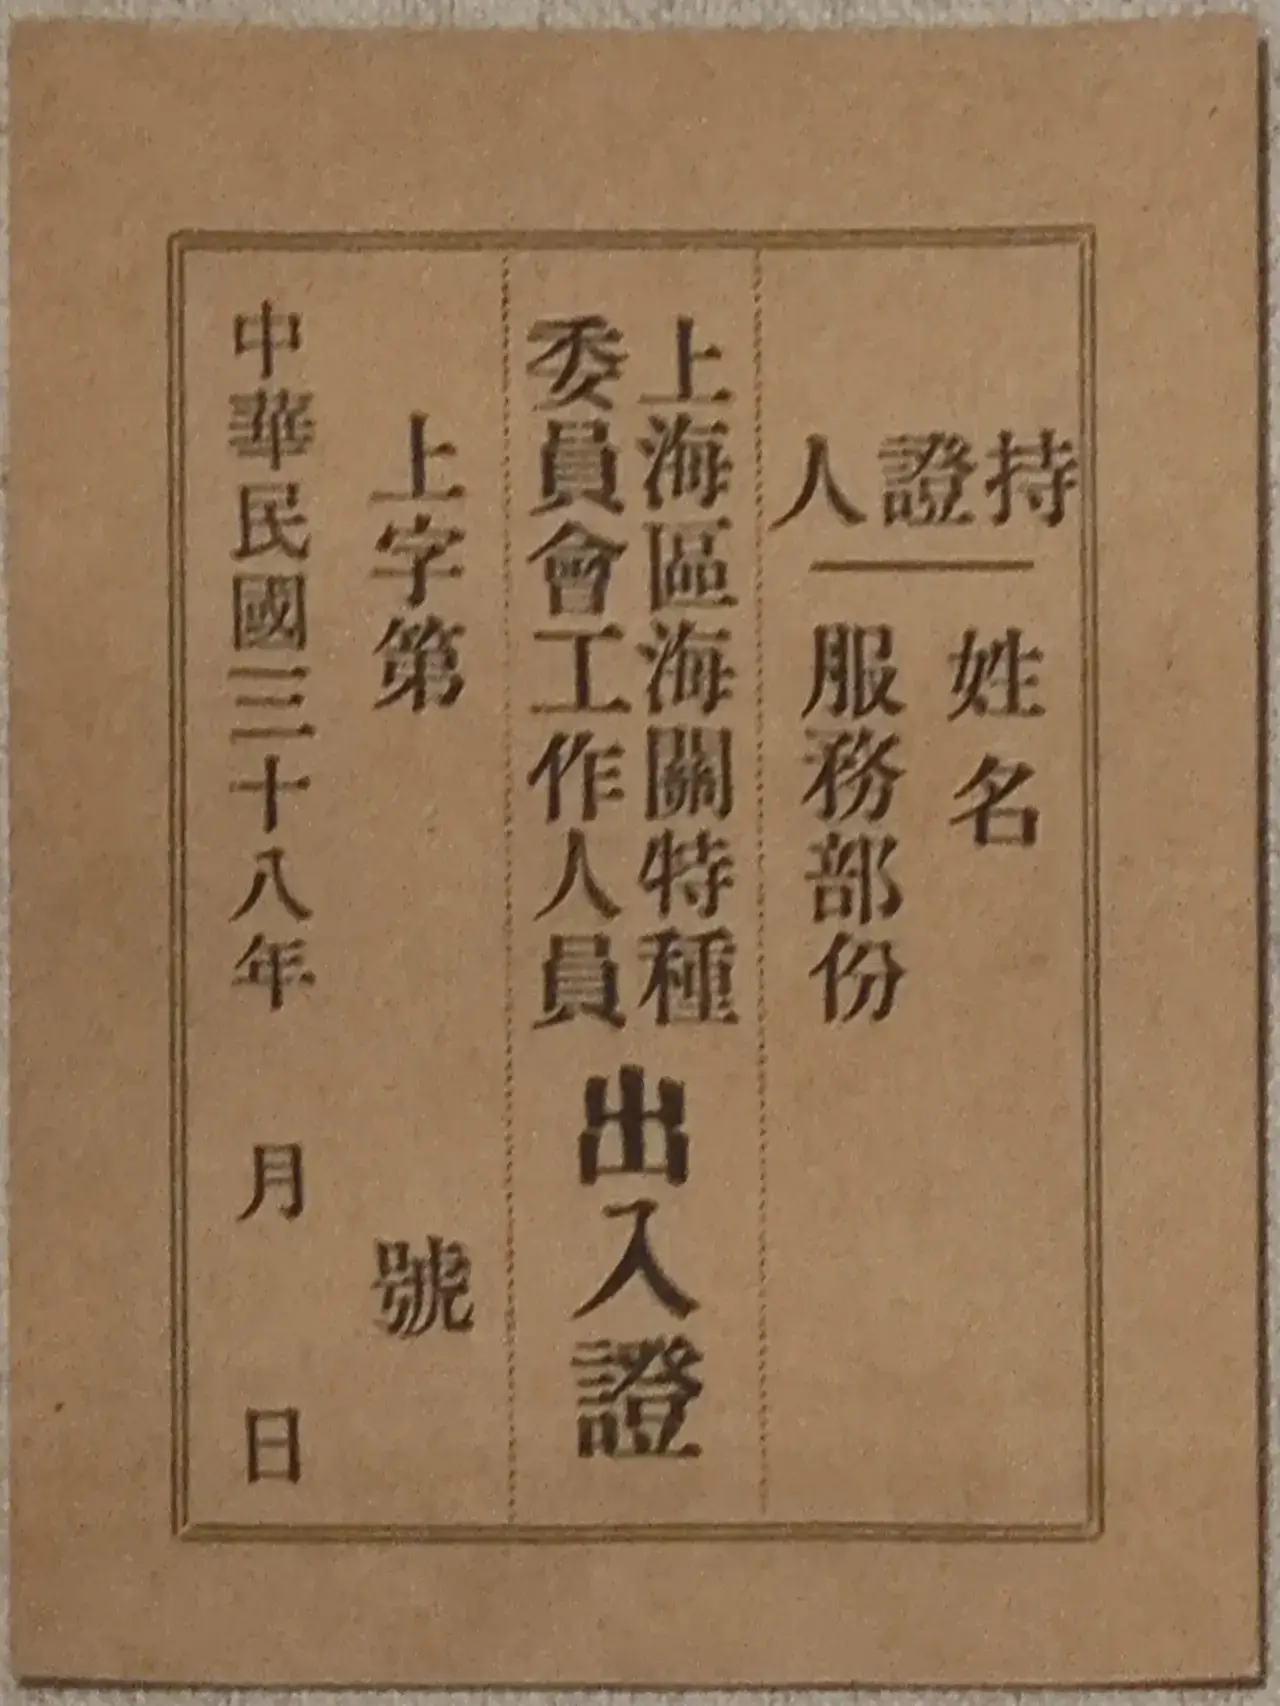 持證人
姓名
服務部份
上海區海關特種
委員會工作人員
出入證
上字第 號
中華民國三十八年 月 日